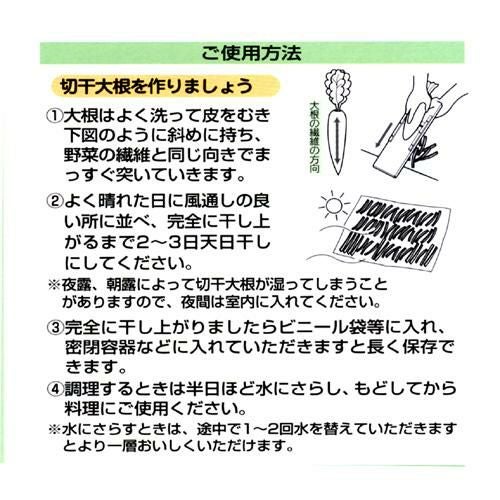 ご使用方法
切干大根を作りましょう
①大根はよく洗って皮をむき
下図のように斜めに持ち、
野菜の繊維と同じ向きでま
っすぐ突いていきます。
大根の繊維の方向
②よく晴れた日に風通しの良
い所に並べ、完全に干し上
がるまで2〜3日天日干し
にしてください。
※夜露、朝露によって切干大根が湿ってしまうこと
がありますので、夜間は室内に入れてください。
③完全に干し上がりましたらビニール袋等に入れ、
密閉容器などに入れていただきますと長く保存で
きます。
④調理するときは半日ほど水にさらし、もどしてから
料理にご使用ください。
※水にさらすときは、途中で1〜2回水を替えていただきます
とより一層おいしくいただけます。